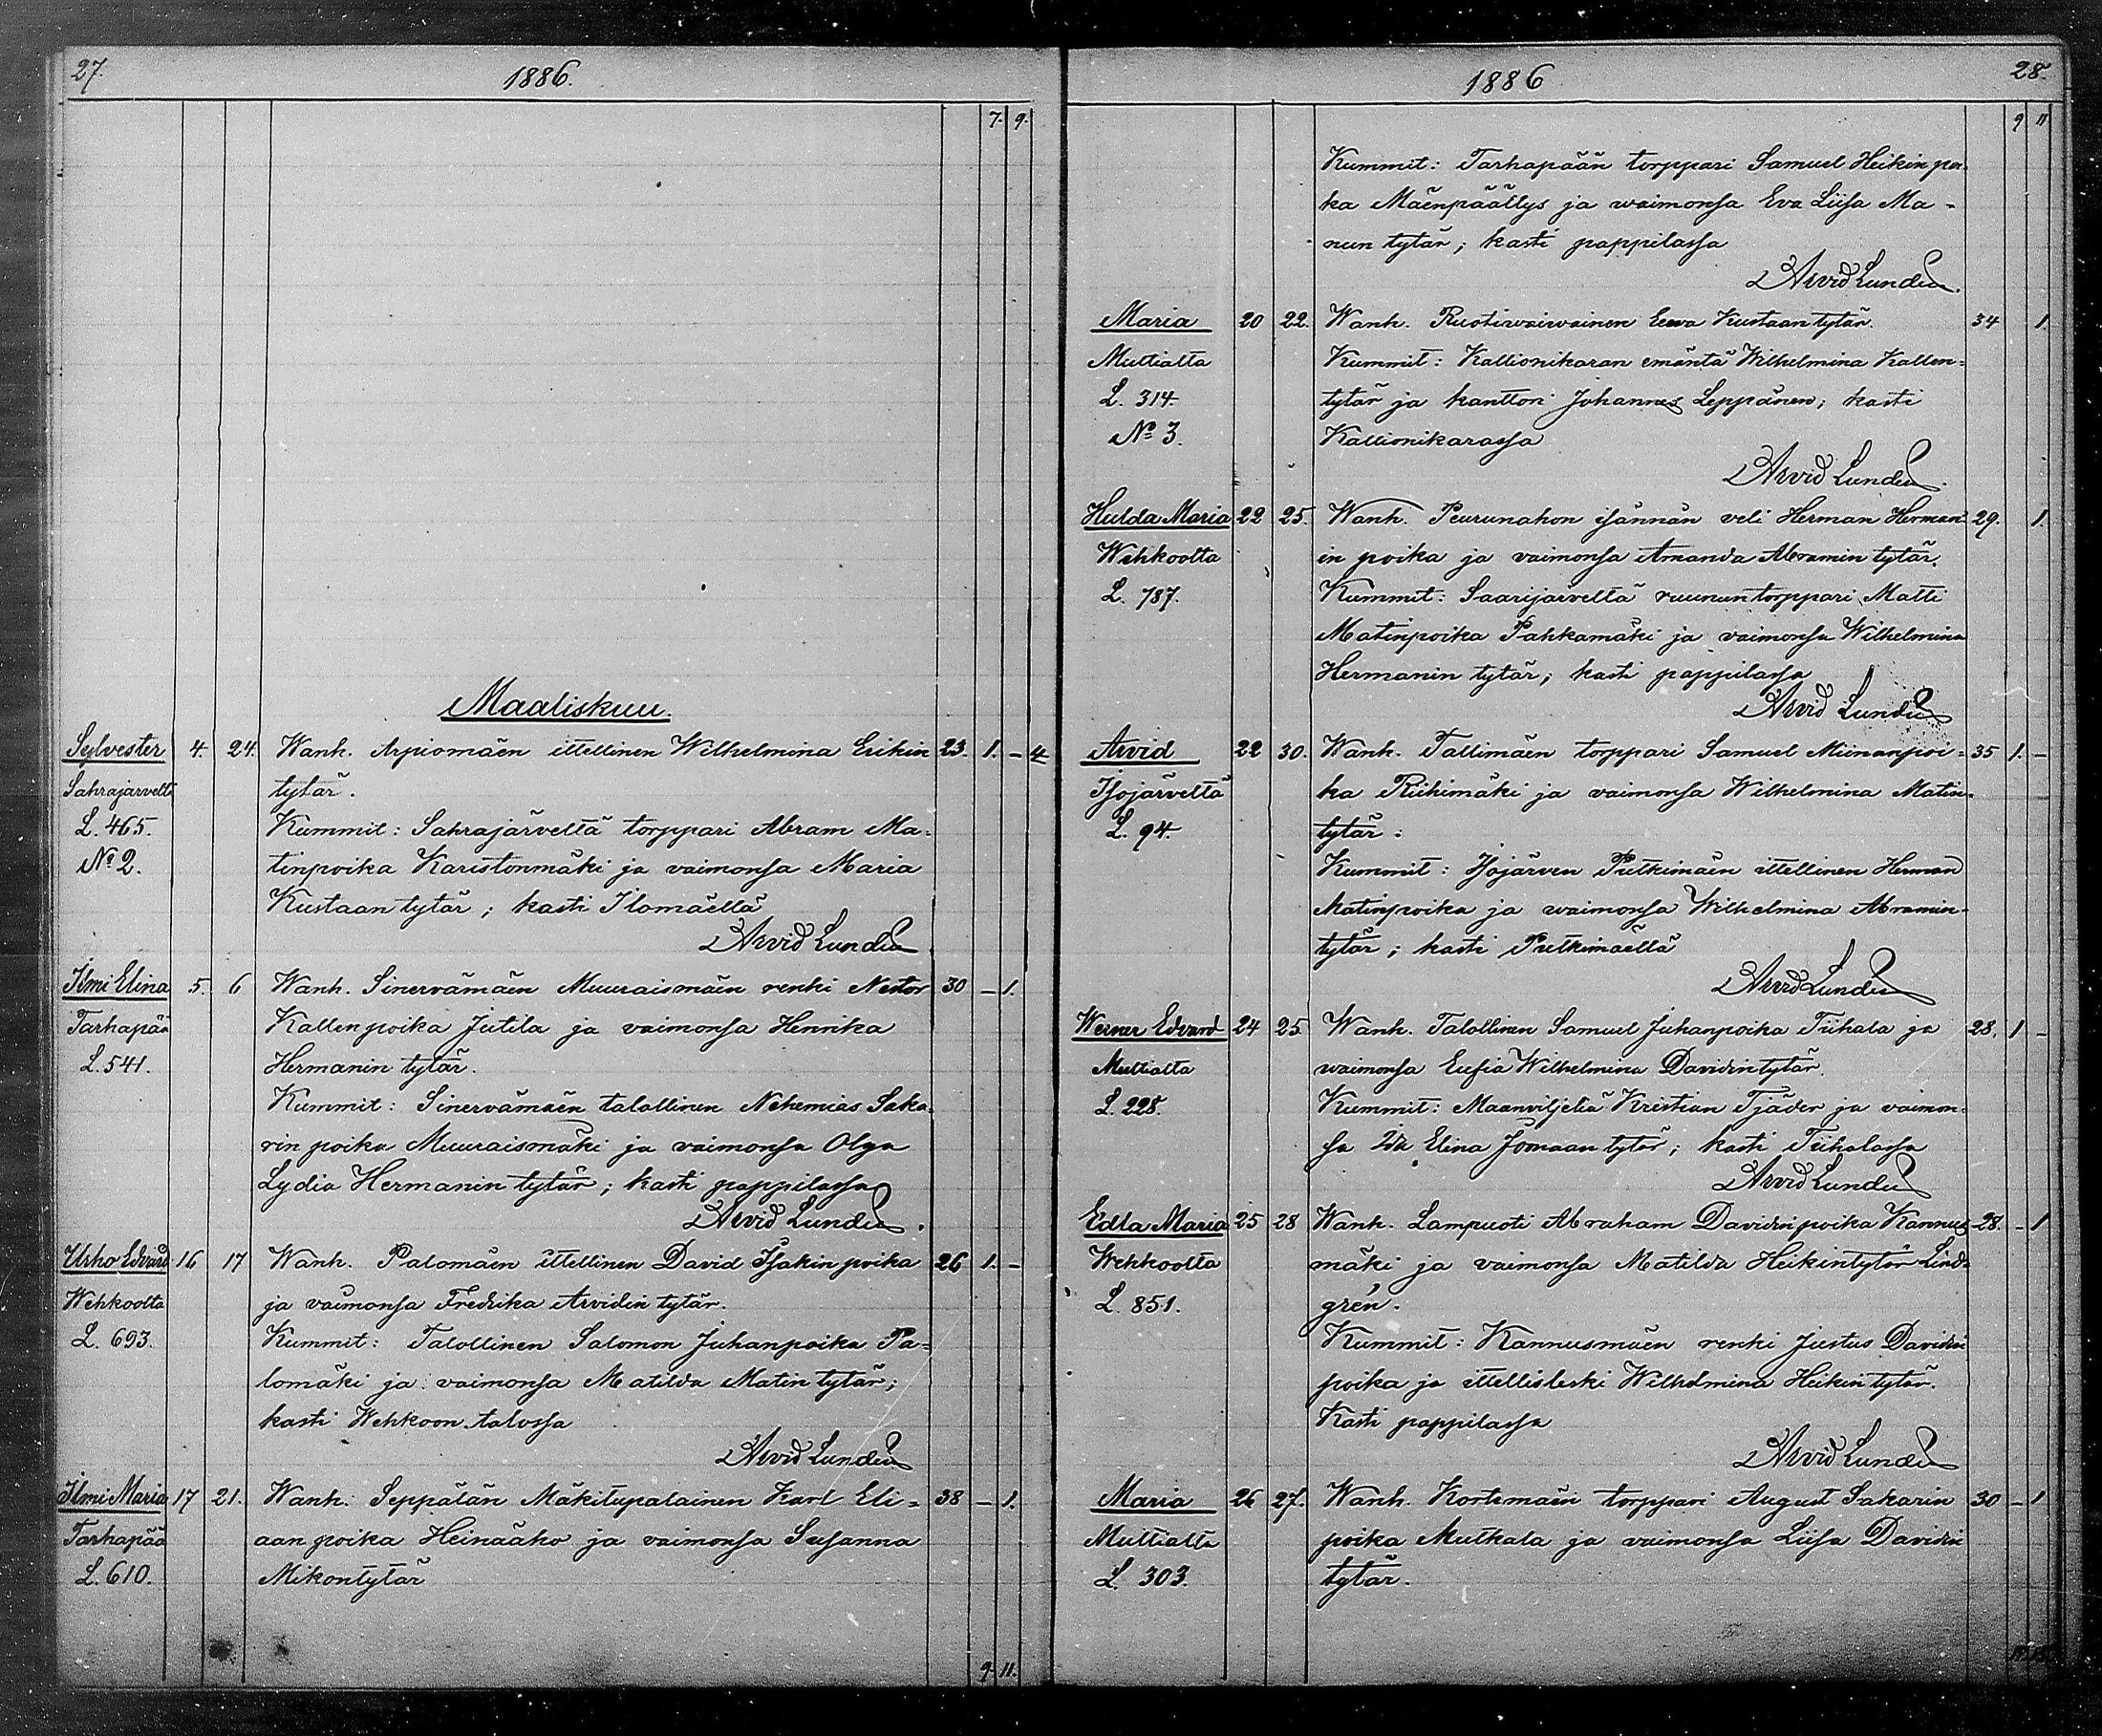 27.
1886.
7. 9.
Maaliskuu.
Sylvester 4. 24. Wanh. Arpiomäen ittellinen Wilhelmina Erikin 23. 1. – 4
Sahrajärveltä tytär.
L. 465. Kummit: Sahrajärveltä torppari Abram Ma=
No 2. tinpoika Karistonmäki ja vaimonsa Maria
Kustaan tytär; kasti Ilomäellä
Arvid Lundén
Ilmi Elina 5. 6 Wanh. Sinervämäen Muuraismäen renki Nestor 30 – 1.
Tarhapää Kallenpoika Jutila ja vaimonsa Henrika
L. 541. Hermanin tytär.
Kummit: Sinervämäen talollinen Nehemias Saka-
rin poika Muuraismäki ja vaimonsa Olga
Lydia Hermanin tytär; kasti pappilassa
Arvid Lundén.
Urho Edvard 16 17 Wanh. Palomäen ittellinen David Isakin poika 26 1. –
Wehkoolta ja vaimonsa Fredrika Arvidin tytär.
L. 693. Kummit: Talollinen Salomon Juhanpoika Pa=
lomäki ja vaimonsa Matilda Matin tytär;
kasti Wehkoon talossa
Arvid Lundén
Ilmi Maria 17 21. Wanh. Seppälän Mäkitupalainen Karl Eli= 38 – 1.
Tarhapää aan poika Heinääho ja vaimonsa Susanna
L. 610. Mikontytär
9. 11.
1886
28.
9 11
Kummit: Tarhapään torppari Samuel Heikin poi-
ka Mäenpäällys ja waimonsa Eva Liisa Ma-
nun tytär; kasti pappilassa
Arvid Lundén.
Maria 20 22. Wanh. Ruotiwaiwainen Eewa Kustaan tytär. 34 1.
Multialta Kummit: Kallionikaran emäntä Wilhelmina Kallen=
L. 314. tytär ja kanttori Johannes Leppänen; kasti
No 3. Kallionikarassa
Arvid Lundén.
Hulda Maria 22 25. Wanh. Peurunahon isännän veli Herman Herman- 29. 1.
Wehkoolta in poika ja vaimonsa Amanda Abramin tytär.
L. 787. Kummit: Saarijärveltä ruunun torppari Matti
Matinpoika Pahkamäki ja vaimonsa Wilhelmina
Hermanin tytär; kasti pappilassa
Arvid Lundén
Arvid 22 30. Wanh. Tallimäen torppari Samuel Miinanpoi= 35 1. –
Isojärveltä ka Riihimäki ja vaimonsa Wilhelmina Matin-
L. 94. tytär.
Kummit: Isojärven Putkimäen ittellinen Herman
Matinpoika ja waimonsa Wilhelmina Abramin-
tytär; kasti Putkimäellä
Arvid Lundén
Werner Edvard 24 25 Wanh. Talollinen Samuel Juhanpoika Tiihala ja 28. 1 –
Multialta waimonsa Eufia Wilhelmina Davidintytär.
L. 228. Kummit: Maanviljeliä Kristian Tjäder ja vaimon-
sa Ida Elina Jomaan tytär; kasti Tiihalassa
Arvid Lundén
Edla Maria 25 28 Wanh. Lampuoti Abraham Davidinpoika Kannus- 28. – 1
Wehkoolta mäki ja vaimonsa Matilda Heikintytär Lind-
L. 851. grén.
Kummit: Kannusmäen renki Justus Davidin
poika ja ittellisleski Wilhelmina Heikin tytär.
Kasti pappilassa
Arvid Lundén
Maria 26 27. Wanh. Kortemäen torppari August Sakarin 30 – 1
Multialta poika Mutkala ja vaimonsa Liisa Davidin
L. 303. tytär.